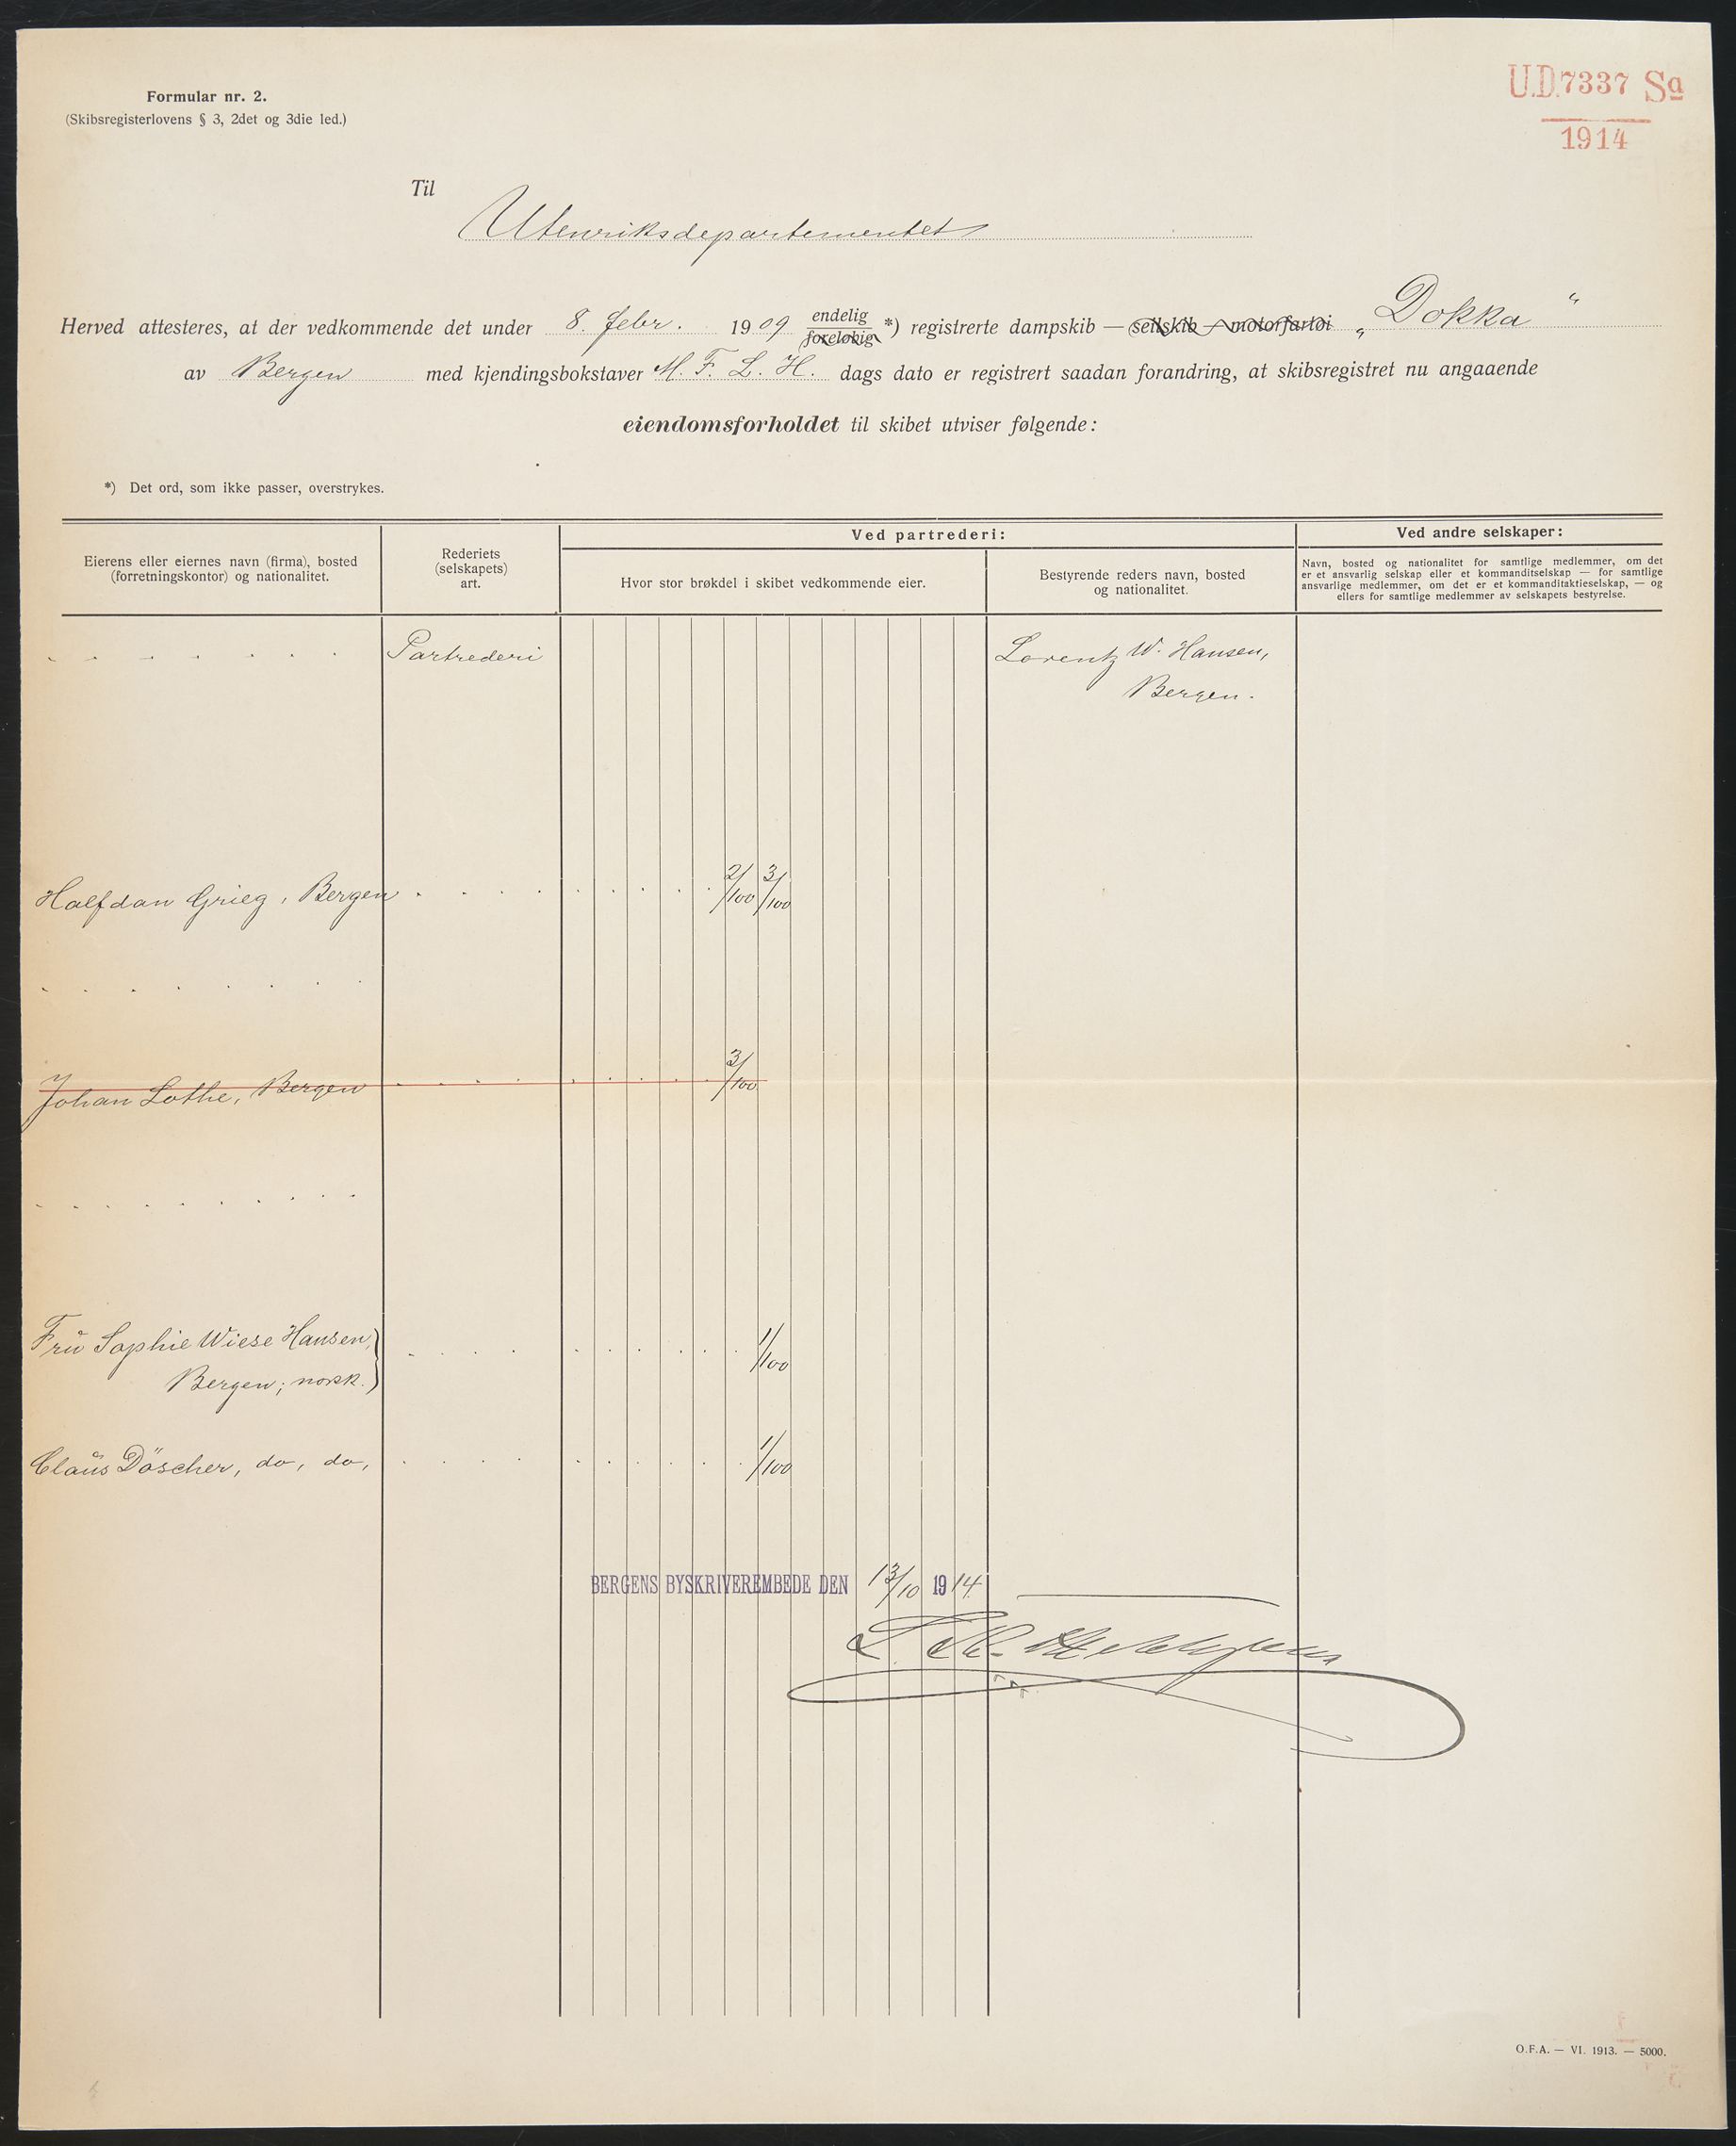 Formular nr. 2.
(Skibsregisterlovens § 3, 2det og 3die led.)
U.D. 7337 Sa
1914
Til
Utenriksdepartementet
Herved attesteres, at der vedkommende det under 8. febr. 1909 endelig foreløbig *) registrerte dampskib — seilskib — motorfartøi „Dokka“
av Bergen med kjendingsbokstaver M. F. L. H. dags dato er registrert saadan forandring, at skibsregistret nu angaaende
eiendomsforholdet til skibet utviser følgende:
*) Det ord, som ikke passer, overstrykes.
Eierens eller eiernes navn (firma), bosted
(forretningskontor) og nationalitet.
Rederiets
(selskapets)
art.
Ved partrederi:
Hvor stor brøkdel i skibet vedkommende eier.
Bestyrende reders navn, bosted
og nationalitet.
Ved andre selskaper:
Navn, bosted og nationalitet for samtlige medlemmer, om det
er et ansvarlig selskap eller et kommanditselskap — for samtlige
ansvarlige medlemmer, om det er et kommanditaktieselskap, — og
ellers for samtlige medlemmer av selskapets bestyrelse.
. . . . . . . Partrederi Lorentz W. Hansen,
Bergen.
Halfdan Grieg, Bergen . . . . . . . . . . 2/100 3/100
. . . . . . . .
Johan Lothe, Bergen . . . . . . . . . 3/100
. . . . . . . . . .
Frü Sophie Wiese Hansen,
Bergen; norsk. . . . . . . . . . . 1/100
Claüs Döscher, do, do, . . . . . . . . . . 1/100
BERGENS BYSKRIVEREMBEDE DEN 13/10 1914.
O.F.A. — VI. 1913. — 5000.